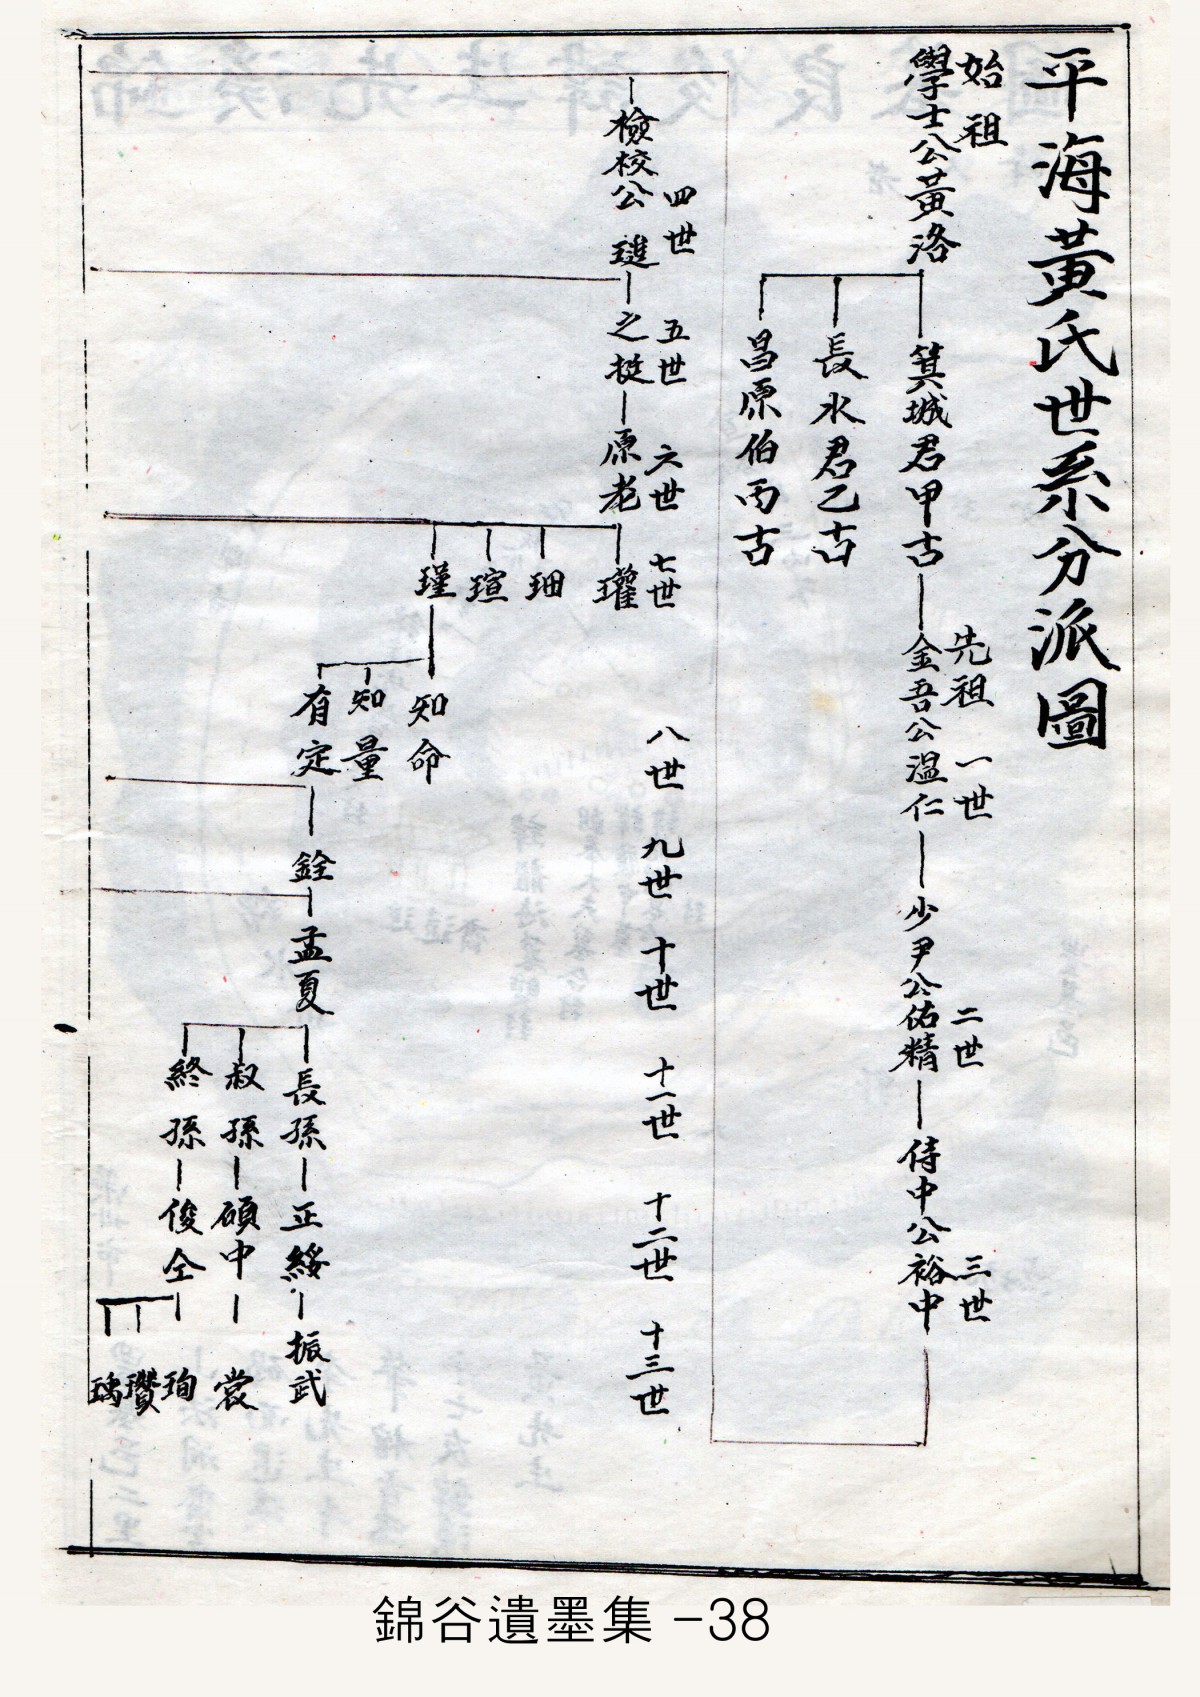 平海黃氏世系分派圖
始祖
學士公黃洛
箕城君甲古
長水君乙古
昌原伯丙古
先祖 一世
金吾公溫仁
二世
少尹公佑精
三世
侍中公裕中
四世
檢校公 璡
五世
之挺
六世
原老
七世
瓘
珊
瑄
瑾
八世
知命
知量
有定
九世
銓
十世
孟夏
十一世
長孫
叔孫
終孫
十二世
正綏
碩中
俊仝
十三世
振武
裳
珣
瓚
瑀
錦谷遺墨集 -38